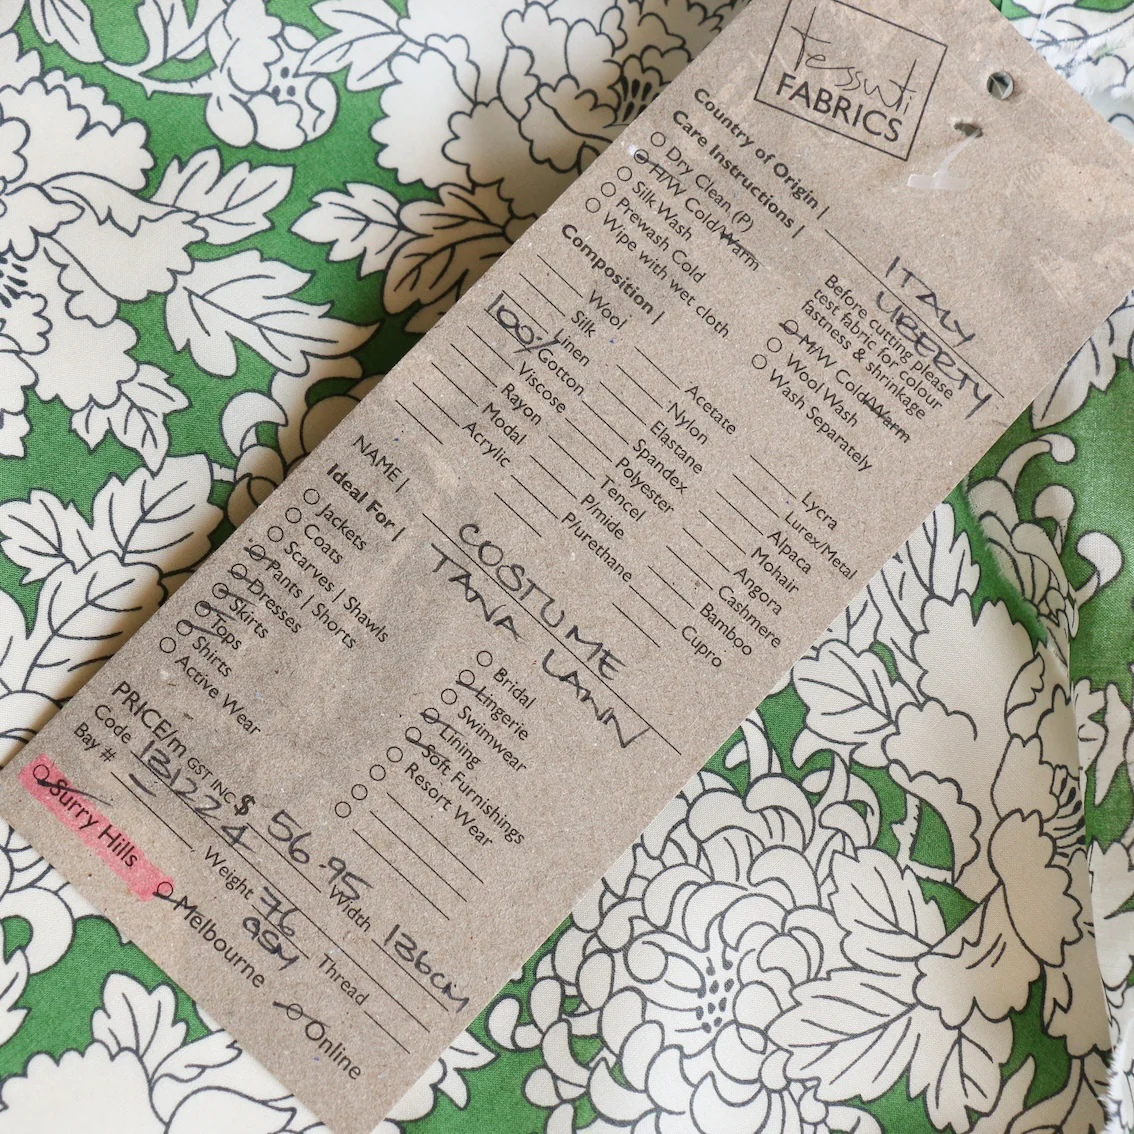 tessuti
FABRICS
Country of Origin | ITALY
LIBERTY
Care Instructions |
Dry Clean (P)
H/W Cold/Warm
Silk Wash
Prewash Cold
Wipe with wet cloth
Before cutting please
test fabric for colour
fastness & shrinkage
M/W Cold/Warm
Wool Wash
Wash Separately
Composition |
Wool
Silk
Linen
100% Cotton
Viscose
Rayon
Modal
Acrylic
Acetate
Nylon
Elastane
Spandex
Polyester
Tencel
P/mide
P/urethane
Lycra
Lurex/Metal
Alpaca
Mohair
Angora
Cashmere
Bamboo
Cupro
NAME | COSTUME
TANA LAWN
Ideal For |
Jackets
Coats
Scarves | Shawls
Pants | Shorts
Dresses
Skirts
Tops
Shirts
Active Wear
Bridal
Lingerie
Swimwear
Lining
Soft Furnishings
Resort Wear
PRICE/m GST INC $ 56.95
Code 131224 Width 136cm
Bay # Weight 76 gsm Thread
Surry Hills Melbourne Online